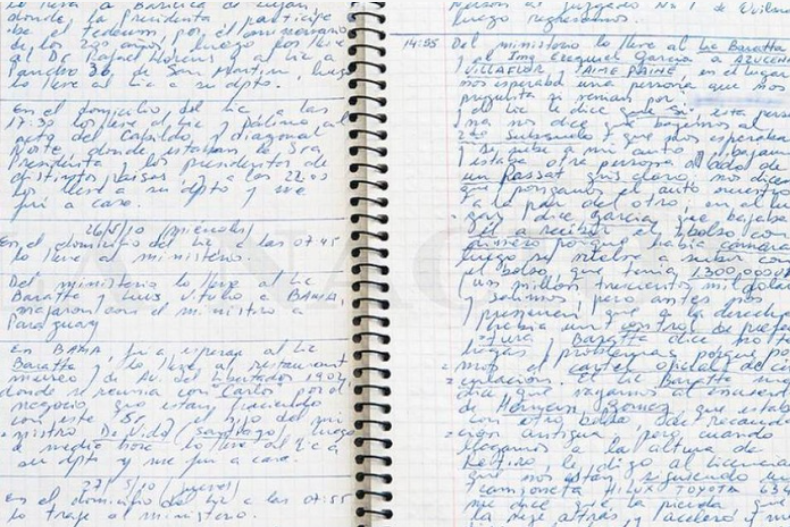 lo llevé a Basílica de Luján
donde la presidenta participó
de el tedeum por el aniversario
de los 200 años, luego los llevé
al Dr Rafael y al Lic a
Pancho 36 de San Martín, luego
lo llevé al Lic a su dpto.
En el domicilio del Lic a las
17:30 los llevé al Lic y Palmira al
acto del Cabildo, y diagonal
Norte donde estaban la Sra
Presidenta y los presidentes de
distintos países y a las 22:00
los llevé a su dpto y me
fui a casa.
26/5/10 (miércoles)
En el domicilio del Lic a las 07:45
lo llevé al ministerio.
Del ministerio lo llevé al Lic
Baratta y Luis Vitullo a BAMA,
viajaron con el ministro a
Paraguay
En BAMA, fui a esperar al Lic
Baratta y lo llevé al restaurant
museo de Av. del Libertador 1902,
donde se reunía con Carlos por el
negocio que están haciendo
con este Sr y el hijo del mi
nistro De Vido (Santiago), luego
a media hora lo llevé al Lic a
su dpto y me fui a casa.
27/5/10 (jueves)
En el domicilio del Lic a las 07:55
lo traje al ministerio.
Nelson al Juzgado Nº 1 de Quilmes
luego regresamos.
14:55 Del ministerio lo llevé al Lic Baratta
y al Ing Ezequiel García a AZUCENA
VILLAFLOR y AIME PAINE, en el lugar
nos esperaba una persona que nos
pregunta si veníamos por
y el Lic le dice que si, esta perso
na nos dice que bajemos al
2do Subsuelo y que nos esperaban
y se sube a mi auto y bajamos
y estaba otra persona al lado de
un Passat gris claro, nos dice
que pongamos el auto nuestro
a la par del otro, en el lu
gar y dice García que bajaba
él a recibir el bolso con
dinero porque había cámaras
luego se vuelve a subir con
el bolso que tenía 1.300.000 U
(un millón trescientos mil dolar
y salimos, pero antes nos
previenen que a la derecha
había un control de prefec
tura y Baratta dice no te
hagas problemas porque po
nemos el cartel oficial de cir
culación. El Lic Baratta me
decía que vayamos al encuentro
de Hernán Gómez que estaba
con otro bolso de recauda
ción antigua, pero cuando
llegamos a la altura de
Retiro, le digo al Licencia
que nos están siguiendo un
camioneta HILUX TOYOTA 634
me dice que la pierda que
la deje atrás y aceleré y